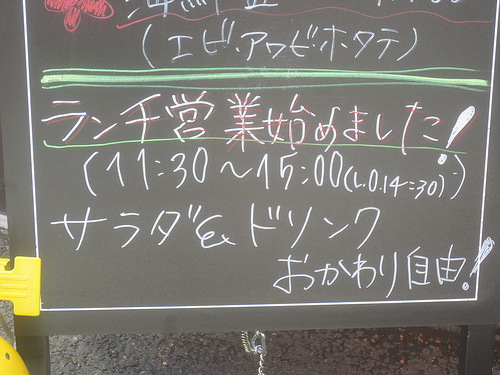 (エビ・アワビ・ホタテ)
ランチ営業始めました!
(11:30〜15:00(L.O.14:30))
サラダ&ドリンク
おかわり自由!